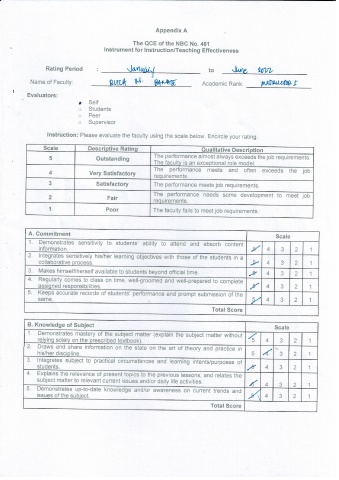 Appendix A
The QCE of the NBC No. 461
Instrument for Instruction/Teaching Effectiveness
Rating Period : January to June 2022
Name of Faculty: Academic Rank: Instructor I
Evaluators:
Self
Students
Peer
Supervisor
Instruction: Please evaluate the faculty using the scale below. Encircle your rating.
Scale Descriptive Rating Qualitative Description
5 Outstanding The performance almost always exceeds the job requirements.
The faculty is an exceptional role model
4 Very Satisfactory The performance meets and often exceeds the job
requirements.
3 Satisfactory The performance meets job requirements.
2 Fair The performance needs some development to meet job
requirements.
1 Poor The faculty fails to meet job requirements.
A. Commitment Scale
1. Demonstrates sensitivity to students' ability to attend and absorb content
information. 5 4 3 2 1
2. Integrates sensitively his/her learning objectives with those of the students in a
collaborative process. 5 4 3 2 1
3. Makes himself/herself available to students beyond official time 5 4 3 2 1
4. Regularly comes to class on time, well-groomed and well-prepared to complete
assigned responsibilities. 5 4 3 2 1
5. Keeps accurate records of students' performance and prompt submission of the
same. 5 4 3 2 1
Total Score
B. Knowledge of Subject Scale
1. Demonstrates mastery of the subject matter (explain the subject matter without
relying solely on the prescribed textbook). 5 4 3 2 1
2. Draws and share information on the state on the art of theory and practice in
his/her discipline. 5 4 3 2 1
3. Integrates subject to practical circumstances and learning intents/purposes of
students. 5 4 3 2 1
4. Explains the relevance of present topics to the previous lessons, and relates the
subject matter to relevant current issues and/or daily life activities. 5 4 3 2 1
5. Demonstrates up-to-date knowledge and/or awareness on current trends and
issues of the subject. 5 4 3 2 1
Total Score